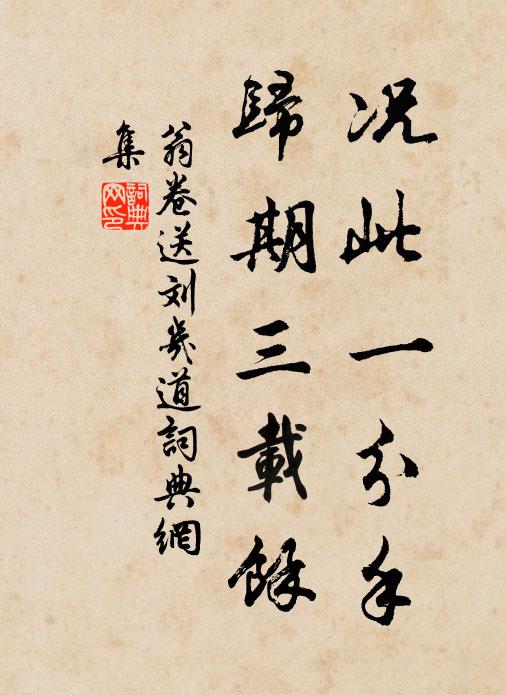 况此一分手
歸期三載餘
翁卷送刘幾道詞典網
集
詞典网印